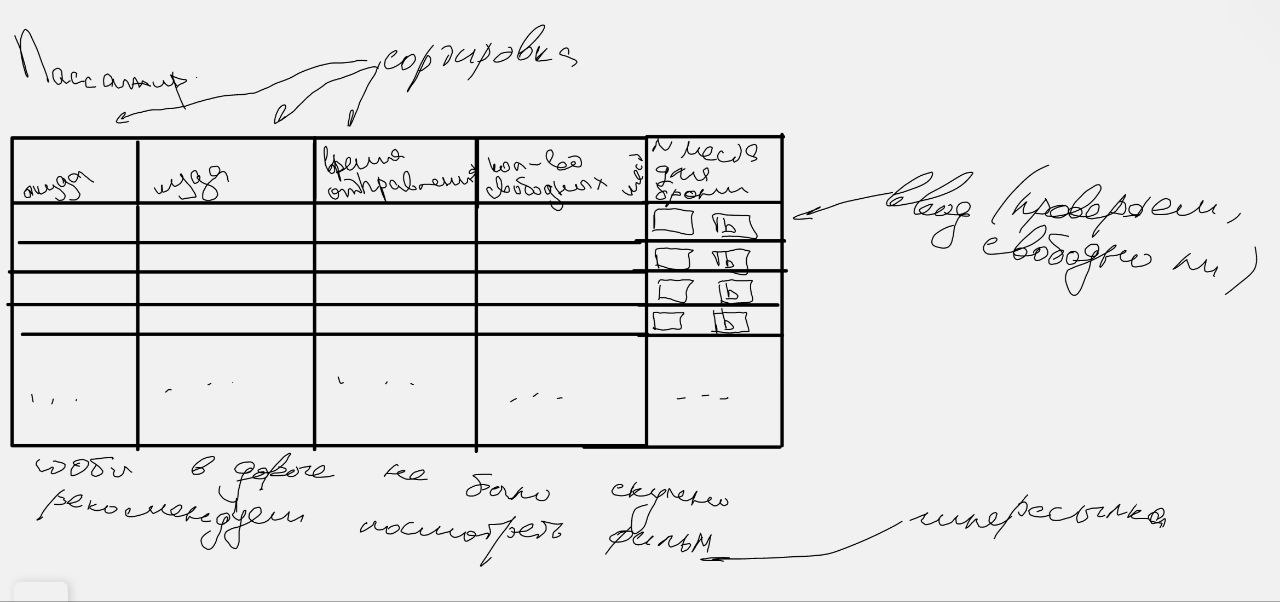 Пассажир.
сортировка
откуда
куда
время
отправления
кол-во
свободных
мест
N места
для
брони
ъ
ъ
ъ
ъ
ввод (проверяем,
свободно ли)
чтобы в дороге не было скучно
рекомендуем посмотреть фильм
гиперссылка